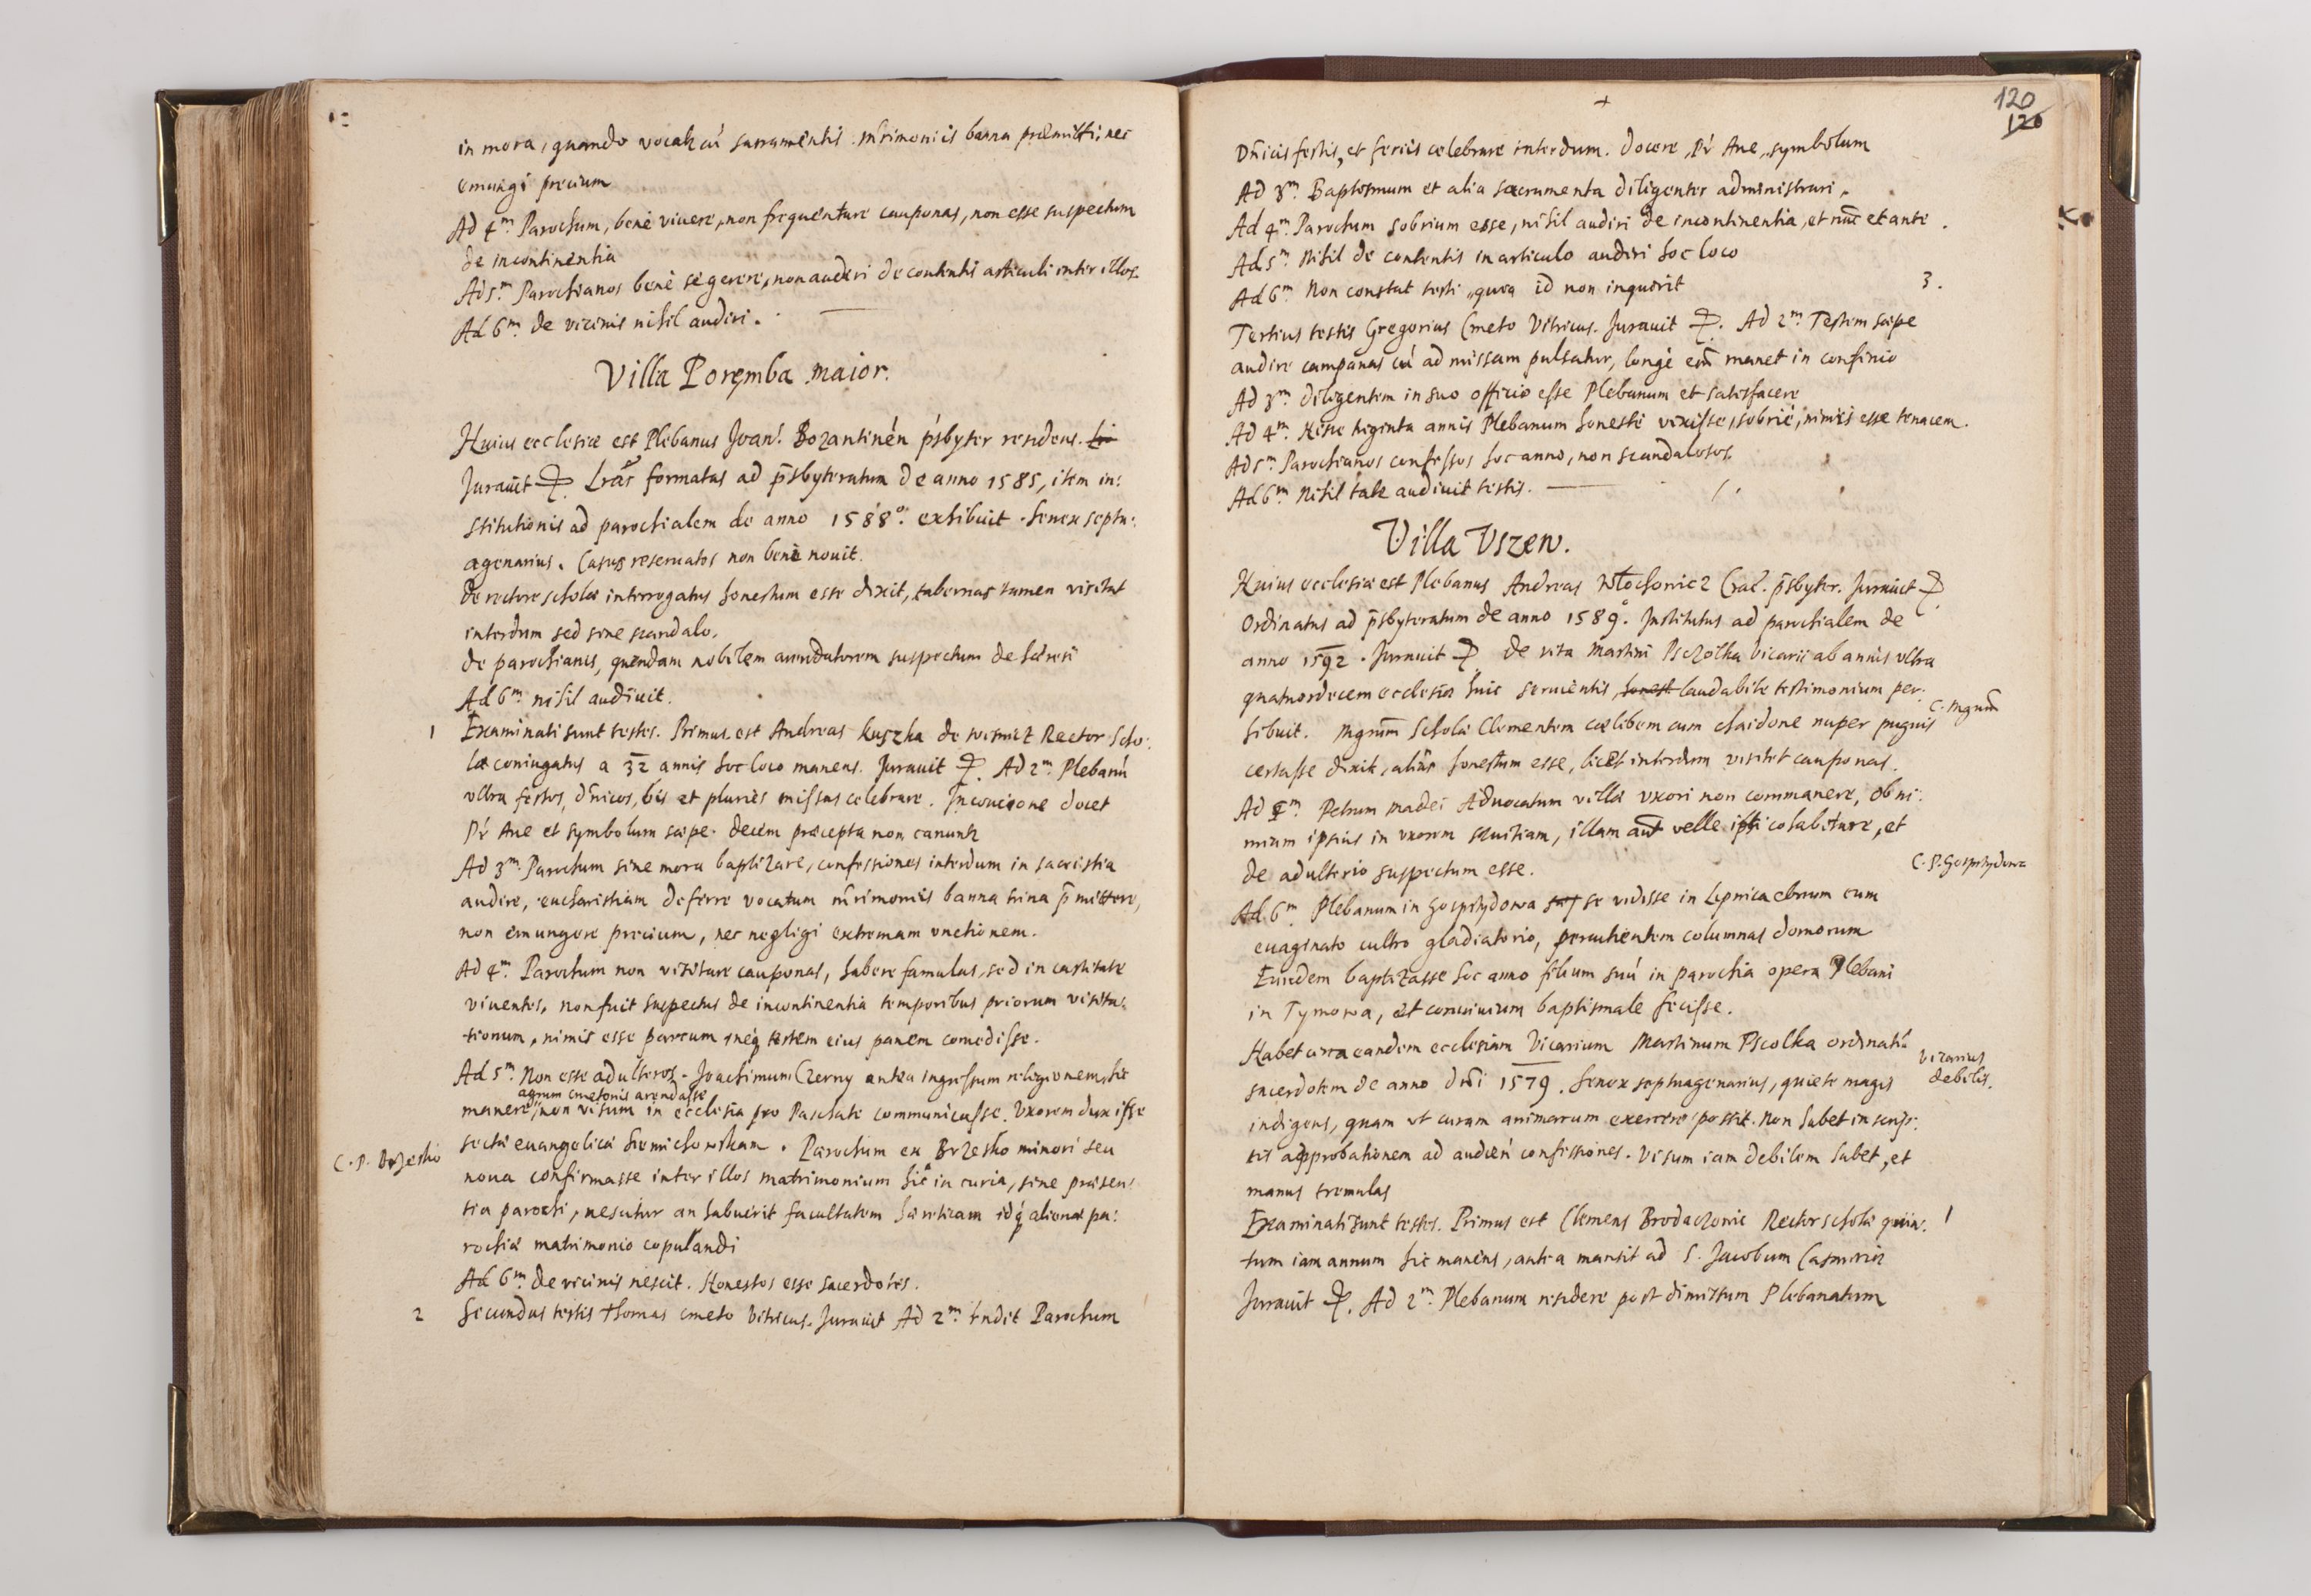 in mora, quando vocat cũ sacramentis. mrimoniis banna praemitti, nec
emungi precium
Ad 4m. Parochum, benè vivere, non frequentare cauponas, non esse suspectum
de incontinentia
Ad 5m. Parochianos benè se gerere, non audiri de contentis articuli inter illos.
Ad 6m. de vicinis nihil audiri.
Villa Poremba maior.
Huius ecclesiæ est Plebanus Joan: Bozantineń psbyter residens.
Jurauit Lras formatas ad psbyteratum de anno 1585, item in:
stitutionis ad parochialem de anno 1588o. exhibuit. Senex septu:
agenarius. Casus reservatos non benè nouit.
De rectore scholæ interrogatus honestum esse dixit, tabernas tamen visitat
interdum sed sine scandalo.
de parochianis, quendam nobilem arendatorem suspectum de hæresi
Ad 6m nihil audiuit.
1 Examinati sunt testes. Primus est Andreas Kuszka de Rector Scho:
læ coniugatus a 32 annis hoc loco manens. Jurauit. Ad 2m. Plebanũ
ultra festos, dnicos, bis et pluries missas celebrare. In concione docet
Pr Ave et symbolum sæpe. decem præcepta non canunt
Ad 3m. Parochum sine mora baptizare, confessiones interdum in sacristia
audire, eucharistiam deferre vocatum mrimoniis banna trina p̄mittere,
non emungere precium, nec negligi extremam unctionem.
Ad 4m. Parochum non visitare cauponas, habere famulas, sed in castitate
viventes, non fuit suspectus de incontinentia temporibus priorum visita:
tionum, nimis esse parcum, neq testem eius panem comedisse.
Ad 5m. Non esse adulteros. Joachimum Czerny antea ingressum religionem, hic
agrum cmetonis arendasse
manere, non visum in ecclesia pro Paschate communicasse. Uxorem duxisse
sectæ euangelicæ Siemichowskam. Parochum ex Brzesko minori seu
C. P. Brzesko
noua confirmasse inter illos matrimonium hic in curia, sine præsen:
tia parochi, nescitur an habuerit facultatem hæreticam idq alienæ pa:
rochiæ matrimonio copulandi
Ad 6m. de vicinis nescit. Honestos esse sacerdotes.
2 Secundus testis Thomas cmeto Vitricus. Jurauit Ad 2m. Parochum
120
120
Dnicis festis, et feriis celebrare interdum. Docere, Pr Ave, symbolum
Ad 3m. Baptismum et alia sacramenta diligenter administrari.
Ad 4m. Parochum sobrium esse, nihil audiri de incontinentia, et nũc et ante.
Ad 5m. Nihil de contentis in articulo audiri hoc loco
Ad 6m. Non constat testi, quia id non inquirit
3.
Tertius testis Gregorius Cmeto Vitricus. Jurauit. Ad 2m. Testem sæpe
audire campanas cũ ad missam pulsatur, longè eni manet in confinio
Ad 3m. diligentem in suo officio esse Plebanum et satisfacere
Ad 4m. triginta annis Plebanum honestè vixisse, sobriè, nimis esse tenacem.
Ad 5m. Parochianos confessos hoc anno, non scandalosos.
Ad 6m. Nihil tale audiuit testis.
Villa Uszew.
Huius ecclesiæ est Plebanus Andreas Włochowicz Crac. psbyter. Jurauit
Ordinatus ad psbyteratum de anno 1589o. Institutus ad parochialem de
anno 1592. Jurauit De vita Martini Psczolka vicarii ab annis ultra
quatuordecem ecclesiæ huic servientis, honest laudabile testimonium per:
hibuit. Mgrum Scholæ Clementem cœlibem cum nuper pugnis
C. Mgrum
certasse dixit, alias honestum esse, licet interdum visitet cauponas.
Ad 5m Petrum Madei Advocatum villæ uxori non commanere, ob ni:
miam ipsius in uxorem sæuitiam, illam aut velle cohabitare, et
de adulterio suspectum esse.
C. P. Gosprzydowa
Ad 6m Plebanum in Gosprzydowa se vidisse in Lipnica ebrium cum
evaginato cultro gladiatorio, percutientem columnas domorum
Eundem baptizasse hoc anno filium suũ in parochia opera Plebani
in Tymowa, et convivium baptismale fecisse.
Habet circa eandem ecclesiam Vicarium Martinum Pscolka ordinatũ
vicarius
debilis.
sacerdotem de anno dni 1579. Senex septuagenarius, quiete magis
indigens, quam ut curam animarum exercere possit. Non habet in scrip:
tis approbationem ad audień confessiones. Visum iam debilem habet, et
manus tremulas
Examinati sunt testes. Primus est Clemens Brodaczowic Rector scholæ quin: 1
tum iam annum hic manens, antea mansit ad S. Jacobum Casmiriæ
Jurauit. Ad 2m. Plebanum residere post dimissum Plebanatum